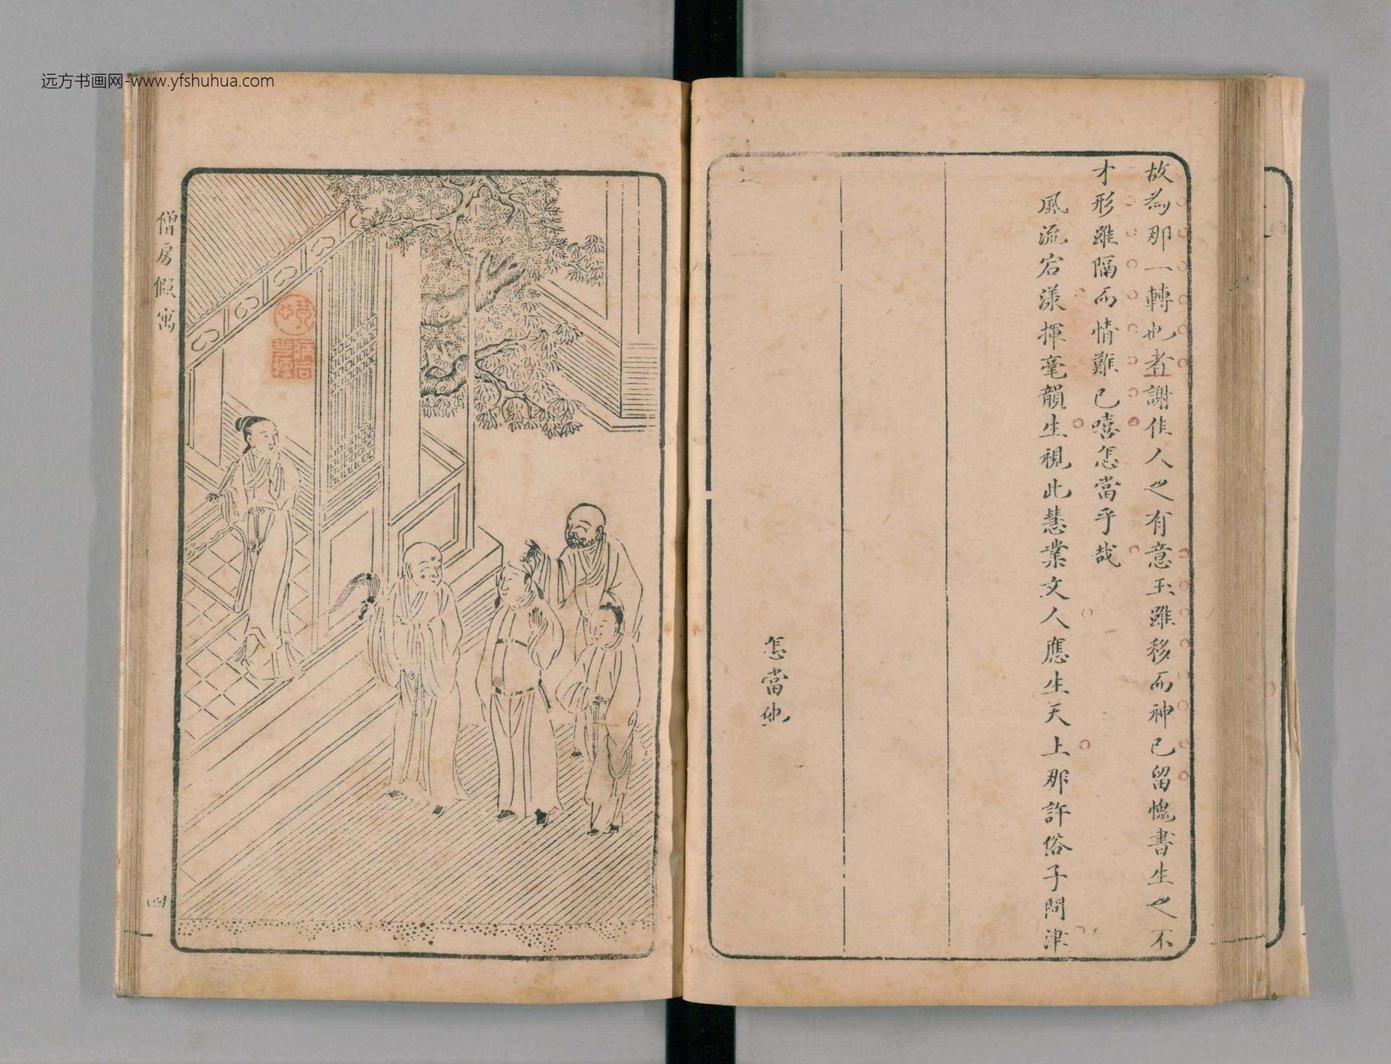 远方书画网-www.yfshuhua.com
故為那一轉也者謝佳人之有意玉雖移而神已留愧書生之不
才形雖隔而情難已嘻怎當乎哉
風流宕漾揮毫韻生視此慧業文人應生天上那許俗子問津
怎當他
僧房假寓
四